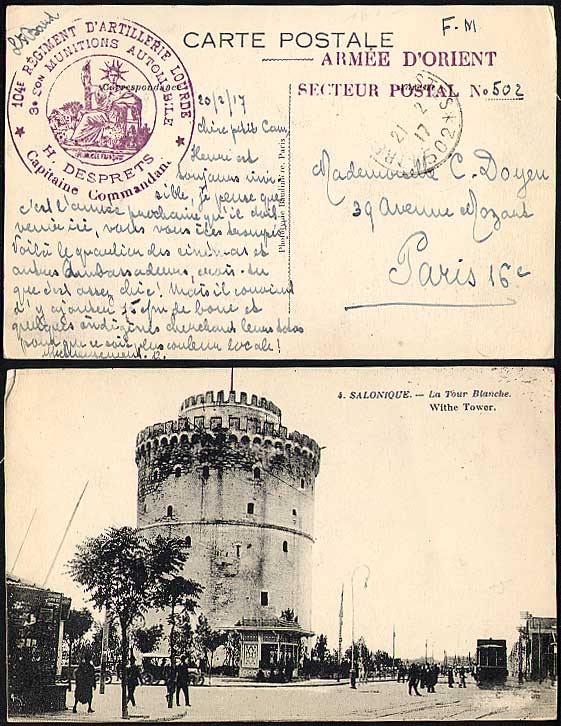 F.M
CARTE POSTALE
ARMÉE D'ORIENT
SECTEUR POSTAL No 502
104e RÉGIMENT D'ARTILLERIE LOURDE
3e con MUNITIONS AUTOMOBILE
H. DESPRETS
Capitaine Commandant
Correspondance
20/2/17
Chère petite Cam,
Henri est
toujours invi
sible, je pense que
c'est l'année prochaine qu'il doit
venir ici,
Voilà le quartier des cinémas et
autres Ambassadeurs, crois-tu
que c'est assez chic! Mais il convient
d'y ajouter 15 cm de boue et
quelques indigènes cherchant leurs
pour que ce soit plus couleur locale!
Mademoiselle C. Doyen
39 Avenue Mozart
Paris 16e
21
2
17
502
4. SALONIQUE. — La Tour Blanche.
Withe Tower.